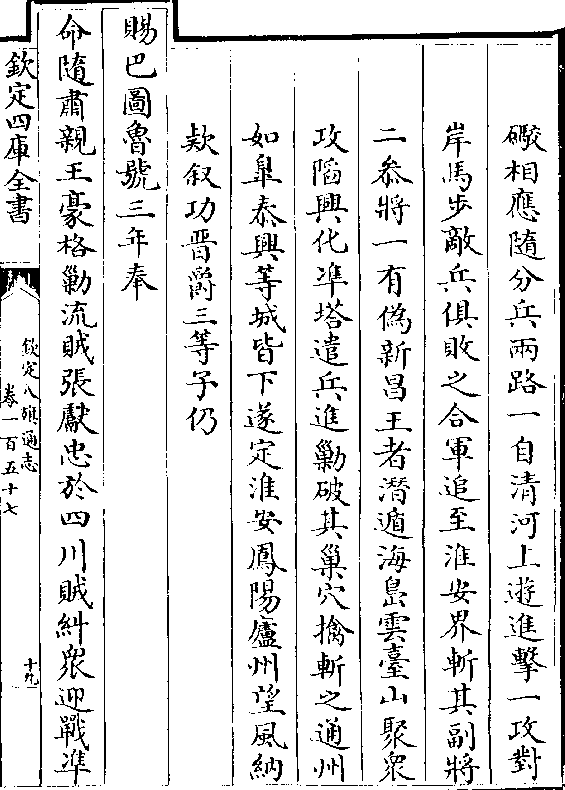 礮相應隨分兵兩路一自清河上遊進擊一攻對
岸馬步敵兵俱敗之合軍追至淮安界斬其副將
二叅將一有僞新昌王者潛遁海島雲臺山聚衆
攻䧟興化凖塔遣兵進勦破其巢穴擒斬之通州
如臯泰興等城皆下遂定淮安鳳陽廬州望風納
欵叙功晋爵三等子仍
賜巴圖魯號三年奉
命隨肅親王豪格勦流賊張獻忠於四川賊糾衆迎戰凖
欽定四庫全書
欽定八旗通志
卷一百五十七
十九